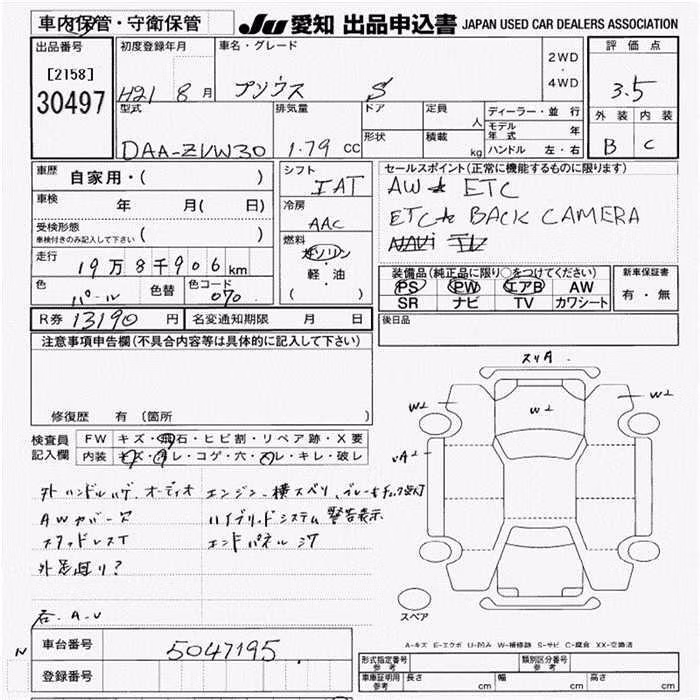 車内保管・守衛保管
JU 愛知 出品申込書 JAPAN USED CAR DEALERS ASSOCIATION
出品番号
[2158]
30497
初度登録年月
H21 8 月
車名・グレード
プリウス S
2WD
・
4WD
評価点
3.5
外装 内装
B C
型式
DAA-ZVW30
排気量
1.79 CC
ドア
形状
定員 人
積載 kg
ディーラー・並行
モデル年式 年
ハンドル 左・右
車歴 自家用・( )
車検 年 月( 日)
受検形態
車検付きのみ記入して下さい ( )
走行
19万8千906km
色
パール
色替
色コード
070
シフト
IAT
冷房
AAC
燃料
ガソリン
・
軽・油
( )
セールスポイント(正常に機能するものに限ります)
AW ETC
ETC BACK CAMERA
NAVI
装備品(純正品に限り○をつけてください)
PS PW エアB AW
SR ナビ TV カワシート
新車保証書
有・無
R券 13190 円 名変通知期限 月 日
後日品
注意事項申告欄(不具合内容等は具体的に記入して下さい)
修復歴 有 (箇所 )
検査員記入欄
FW キズ・飛石・ヒビ割・リペア跡・X要
内装 キズ・ヨゴレ・コゲ・穴・スレ・キレ・破レ
外ハンドルハゲ、オーディオ
AWカバー欠
スタッドレスT
外足回り?
エンジン横スベリ、ブレーキチェック点灯
ハイブリッドシステム警告表示
エンドパネルシワ
スリA
W2
W2
W2
A2
スペア
A-キズ E-エクボ U-凹み W-補修跡 S-サビ C-腐食 XX-交換済
N
車台番号 5047195
登録番号
形式指定番号
参考
類別区分番号
参考
車庫証明用
参考
長さ cm
幅 cm
高さ cm